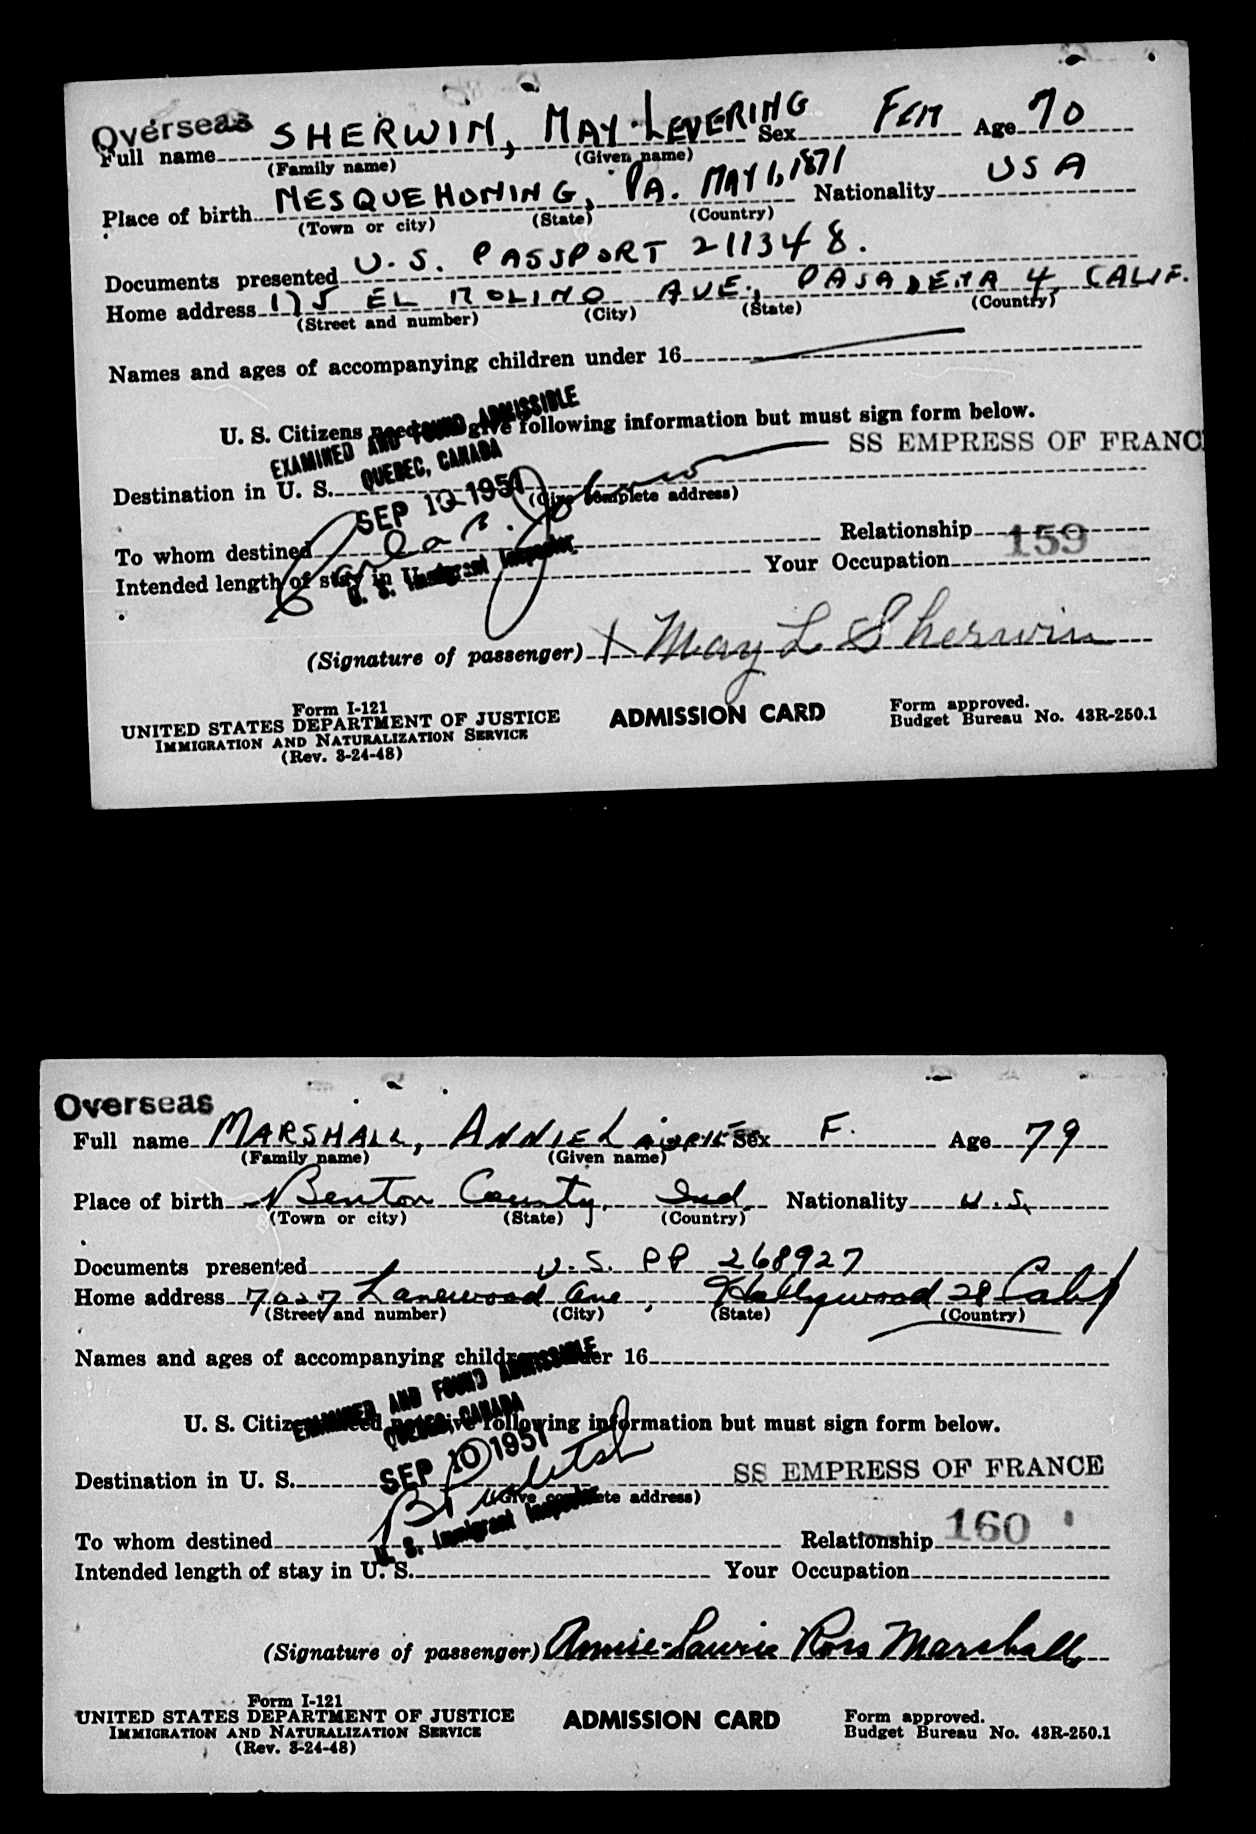 Overseas
Full name SHERWIN, MAY LEVERING Sex FEM Age 70
(Family name) (Given name)
Place of birth NESQUEHONING, PA. MAY 1, 1871 Nationality USA
(Town or city) (State) (Country)
Documents presented U.S. PASSPORT 211348.
Home address 175 EL MOLINO AVE., PASADENA 4, CALIF.
(Street and number) (City) (State) (Country)
Names and ages of accompanying children under 16
U. S. Citizens need give following information but must sign form below.
EXAMINED AND FOUND ADMISSIBLE
QUEBEC, CANADA
SS EMPRESS OF FRANC
Destination in U. S.
(Give complete address)
SEP 10 1951
To whom destined Relationship 159
Intended length of stay in U. Your Occupation
U. S. Immigrant Inspector
(Signature of passenger) X May L Sherwin
Form I-121
UNITED STATES DEPARTMENT OF JUSTICE
IMMIGRATION AND NATURALIZATION SERVICE
(Rev. 3-24-48)
ADMISSION CARD
Form approved.
Budget Bureau No. 43R-250.1
Overseas
Full name MARSHALL, ANNIE LAURIE Sex F. Age 79
(Family name) (Given name)
Place of birth Benton County, Ind. Nationality U.S.
(Town or city) (State) (Country)
Documents presented U.S. PP 268927
Home address 7027 Lanewood Ave, Hollywood 28 Calif
(Street and number) (City) (State) (Country)
Names and ages of accompanying children under 16
EXAMINED AND FOUND ADMISSIBLE
QUEBEC, CANADA
U. S. Citizens need give following information but must sign form below.
SEP 10 1951
Destination in U. S. SS EMPRESS OF FRANCE
(Give complete address)
To whom destined Relationship 160
U. S. Immigrant Inspector
Intended length of stay in U. S. Your Occupation
(Signature of passenger) Annie-Laurie Ross Marshall
Form I-121
UNITED STATES DEPARTMENT OF JUSTICE
IMMIGRATION AND NATURALIZATION SERVICE
(Rev. 3-24-48)
ADMISSION CARD
Form approved.
Budget Bureau No. 43R-250.1